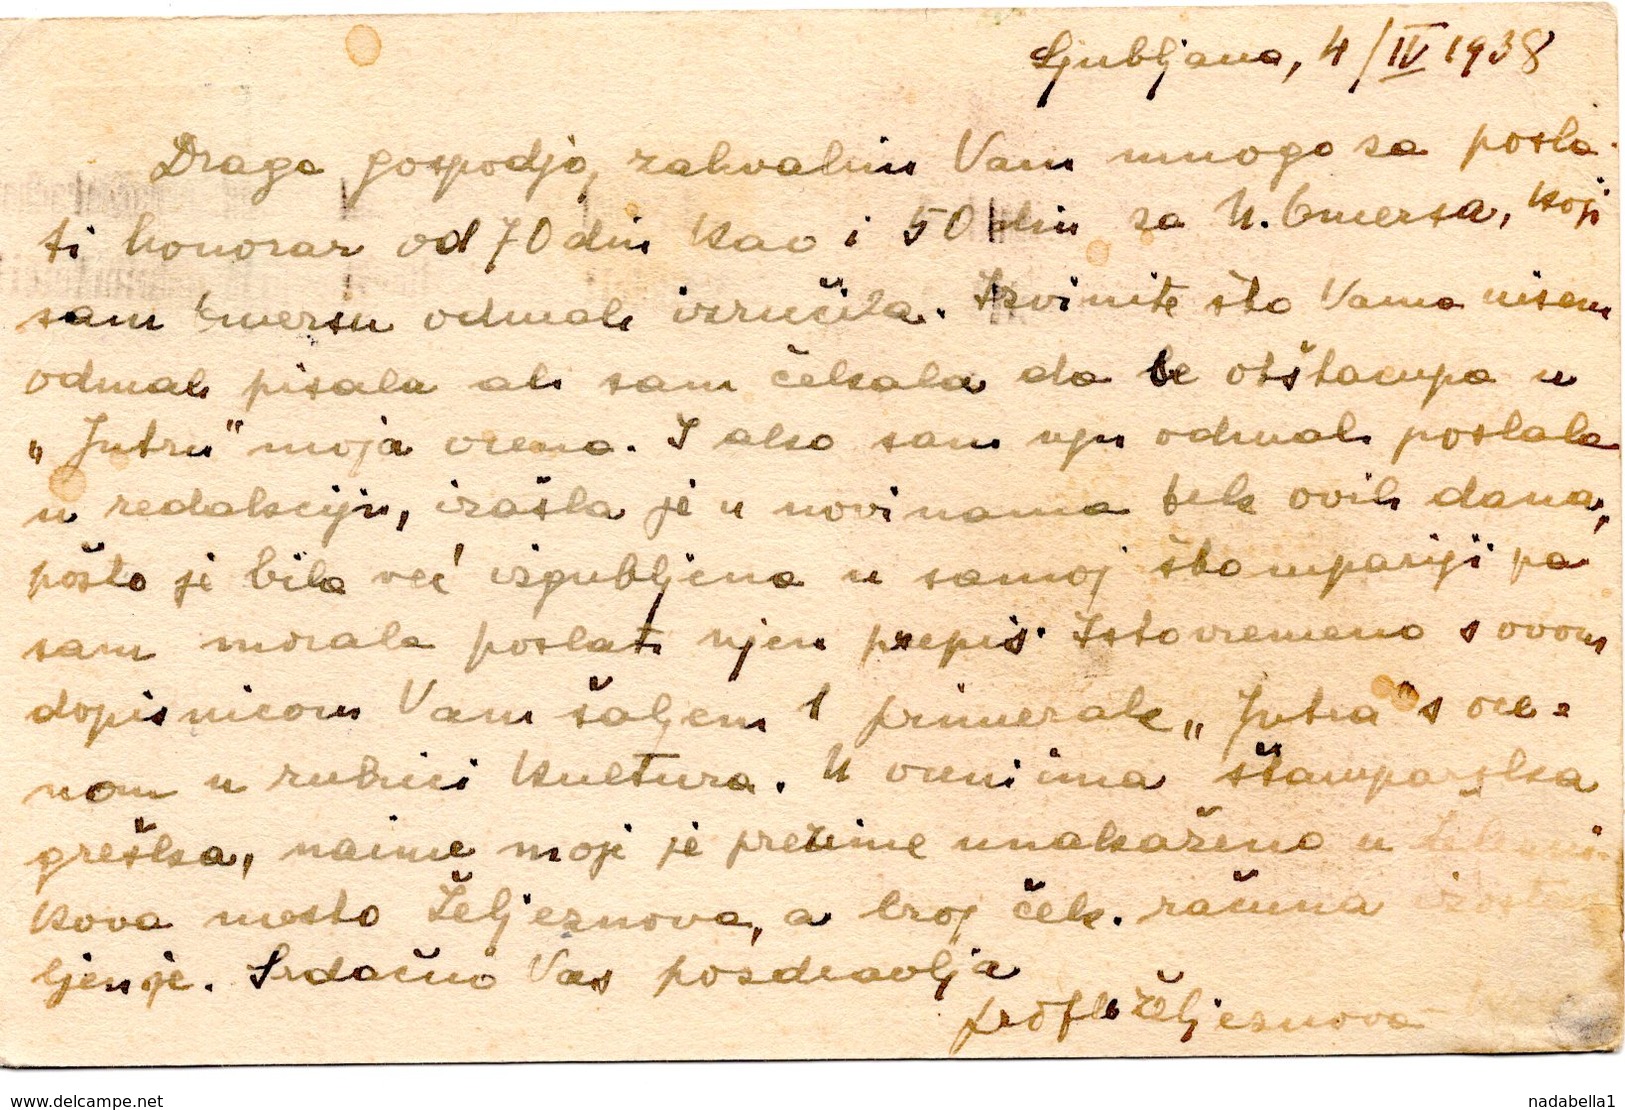 Ljubljana, 4/IV 1938
Draga gospodjo, zahvalim Vam mnogo za posla-
ti honorar od 70 din kao i 50 din za U. Emersa, koji
sam Emersu odmah izručila. Izvinite što Vama nisam
odmah pisala ali sam čekala da se otštampa u
„Jutru" moja ocena. I ako sam nju odmah poslala
u redakciju, izašla je u novinama tek ovih dana,
pošto je bila već izgubljena u samoj štampariji pa
sam morala poslati njen prepis. Istovremeno s ovom
dopisnicom Vam šaljem 1 primerak „Jutra" s oce-
nom u rubrici Kultura. U oceni ima štamparska
greška, naime moje je prezime unakaženo u Železni-
kova mesto Željeznova, a broj ček. računa izostav
ljen je. Srdačno Vas pozdravlja
prof Željeznova
www.delcampe.net
nadabella1